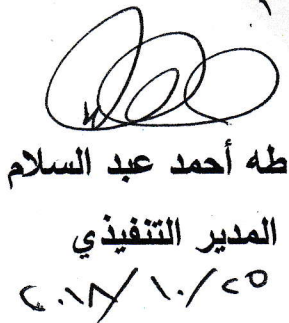 طه أحمد عبد السلام
المدير التنفيذي
٢٠١٨/١٠/٢٥